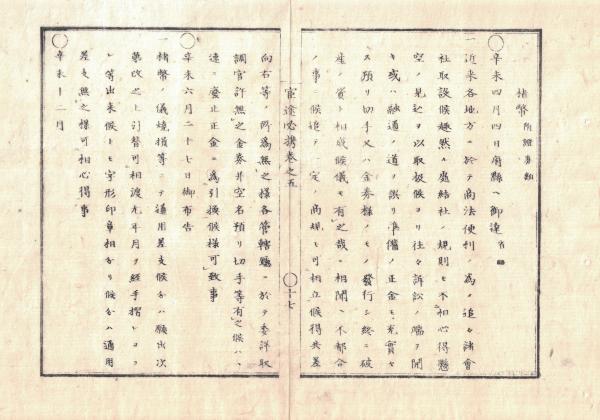 楮幣 附證券類
○辛未四月四日府縣ヘ御達 省略
一近来各地方ニ於テ商法便利ノ為メ追々諸會
社取設候趣然ル處結社ノ規則モ不相心得懸
空ノ見込ヲ以取極候ヨリ往々訴訟ノ端ヲ開
キ或ハ融通ノ道ヲ誤リ準備ノ正金モ充實セ
ス預リ切手又ハ金券様ノモノ發行シ終ニ破
産ノ賓ト相成候儀モ有之哉ニ相聞ヘ不都合
ノ事ニ候追テ一定ノ商規モ可相立候得共差
官途必携巻之五
○十七
向右等ノ所為無之様各管轄廳ニ於テ委詳取
調官許無之金券并空名預リ切手等有之候ハヽ
速ニ廃止正金ニ為引換候様可致事
○辛未六月二十七日御布告
一楮幣ノ儀焼損等ニテ通用差支候分ハ願出次
第改之上引替可相渡尤年月ヲ経手摺レヨコ
レ等出来候トモ字形印章相分リ候分ハ通用
差支無之様可相心得事
○辛未十二月